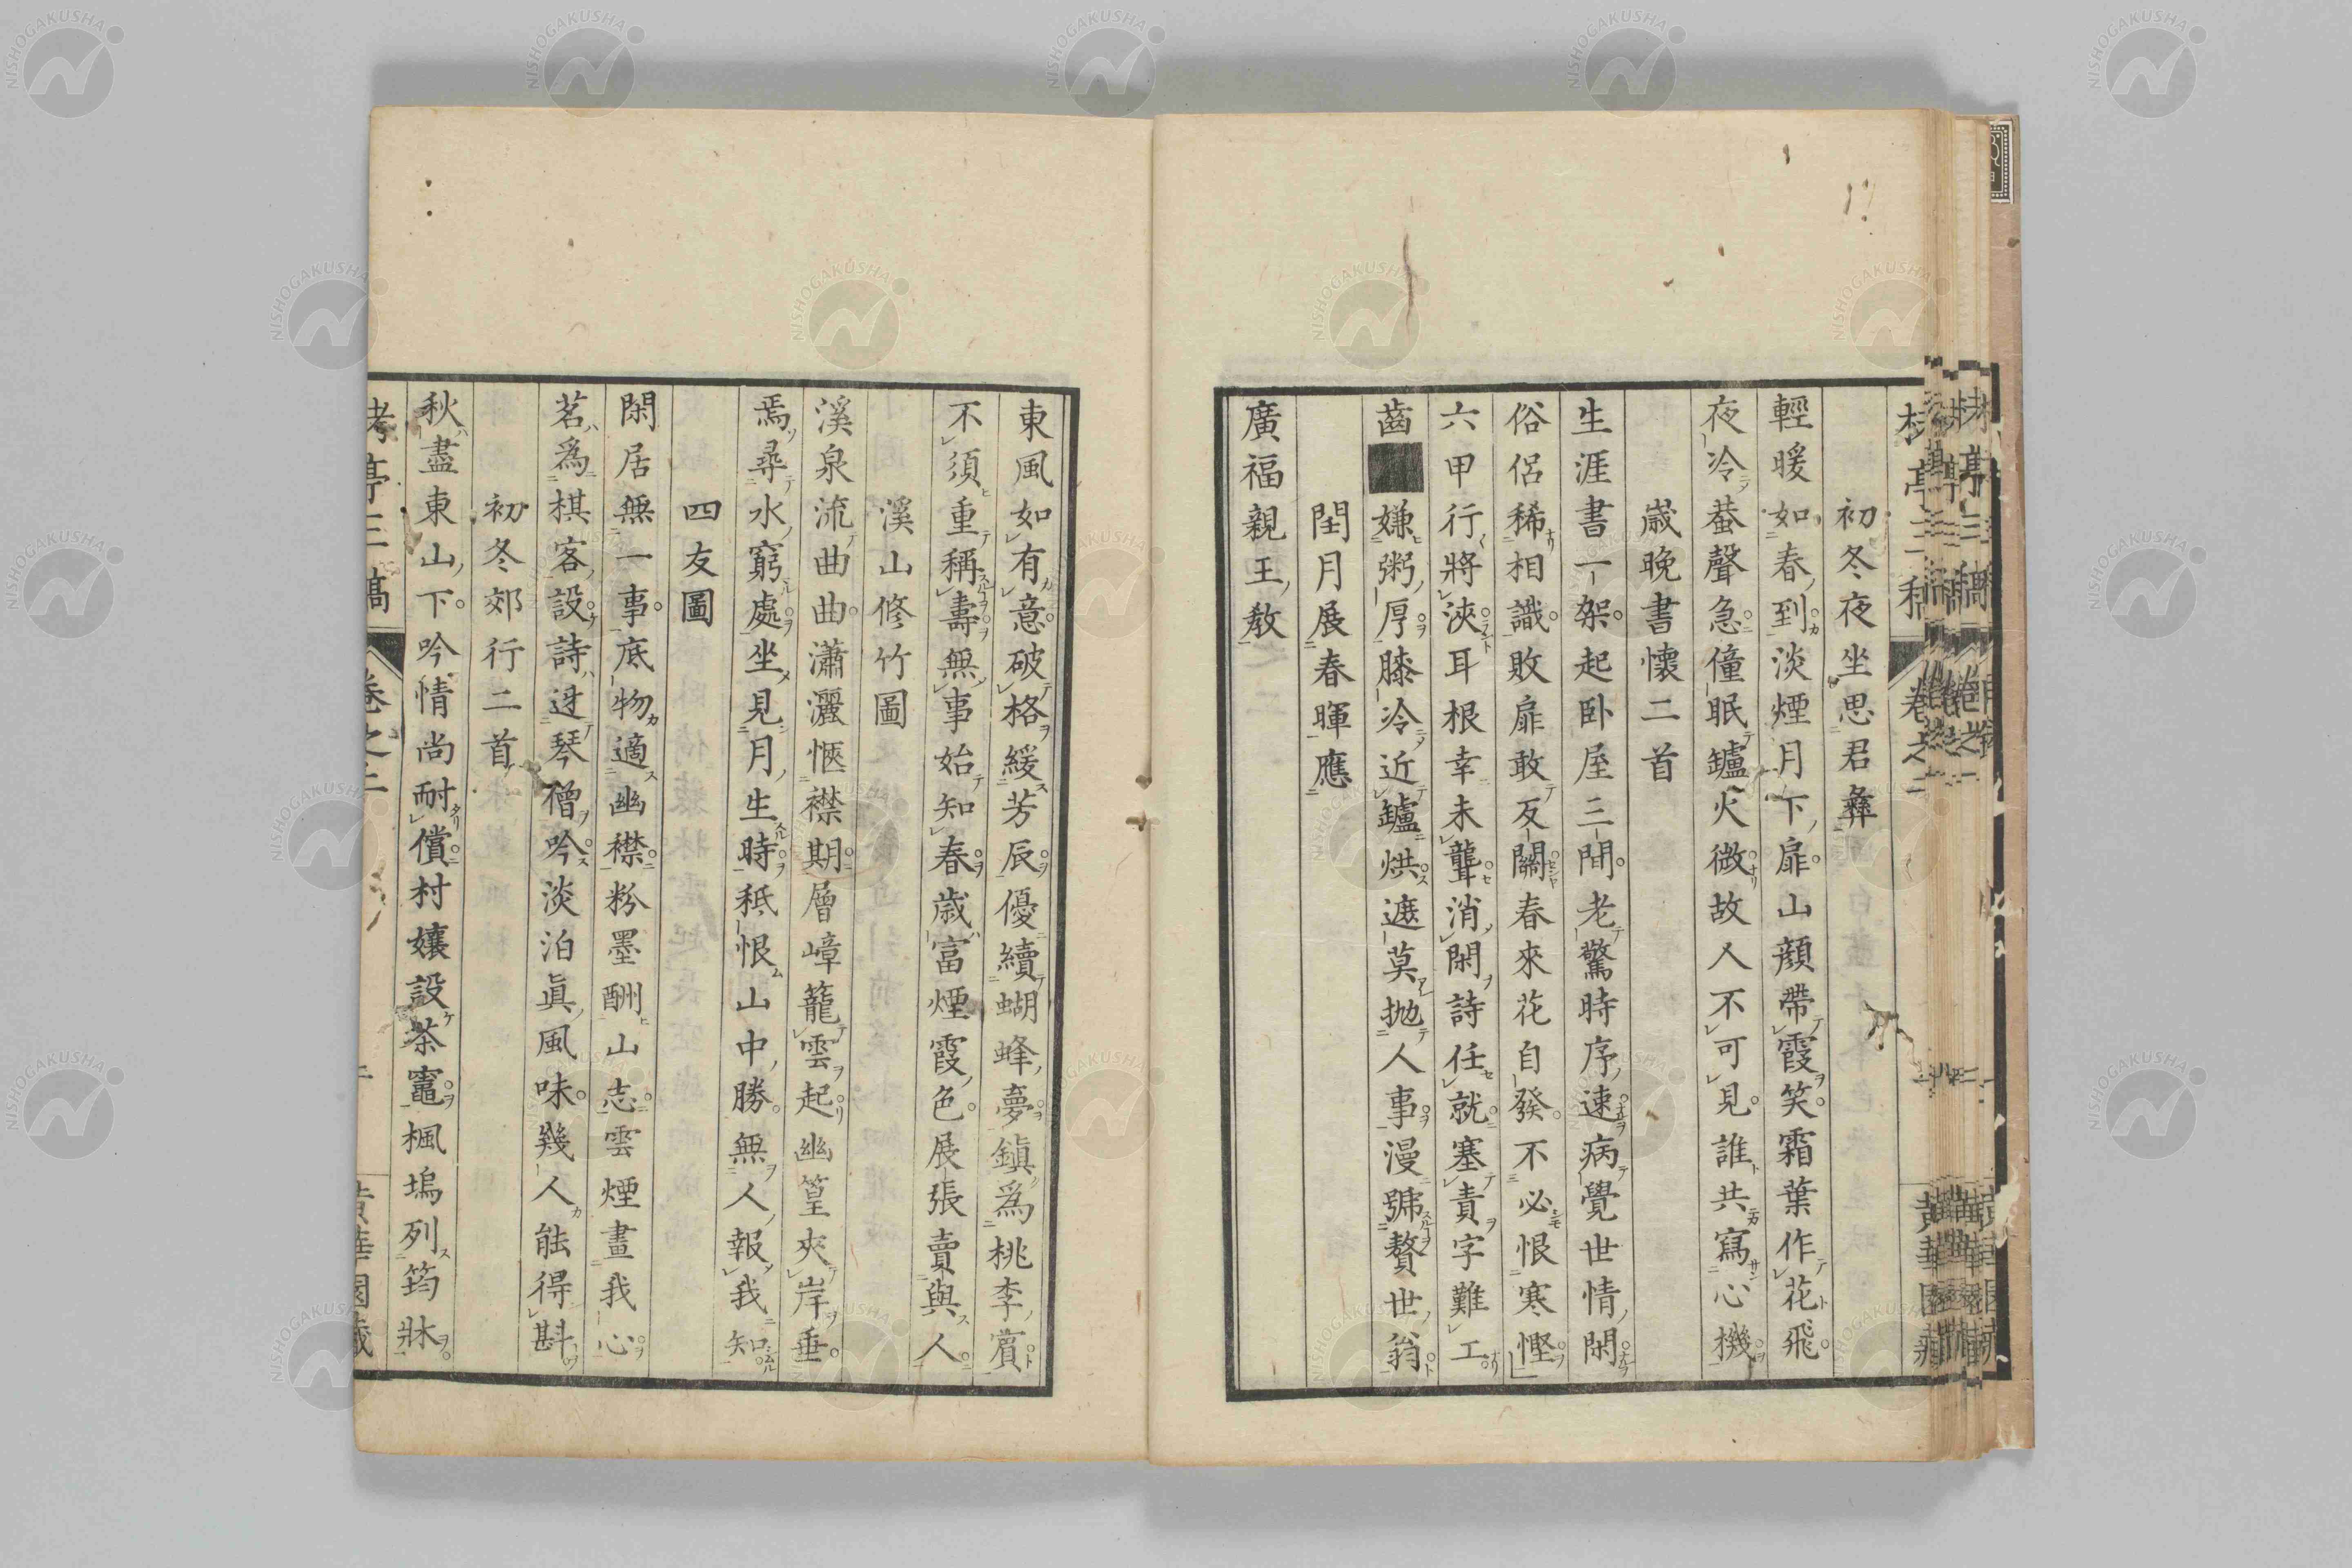 初冬夜坐思君彝
輕暖如春到淡煙月下扉山顏帶霞笑霜葉作花飛
夜冷蛬聲急僮眠鑪火微故人不可見誰共寫心機
歲晩書懷二首
生涯書一架起卧屋三間老驚時序速病覺世情閑
俗侶稀相識敗扉敢叐關春來花自發不必恨寒慳
六甲行將浹耳根幸未聾消閑詩任就塞責字難工
齒■嫌粥厚膝冷近鑪烘遮莫抛人事漫號贅世翁
閏月展春暉應
廣福親王教
東風如有意破格緩芳辰優續蝴蜂夢鎮爲桃李賓
不須重稱壽無事始知春歲富煙霞色展張賣與人
溪山修竹圖
溪泉流曲曲瀟灑愜襟期層嶂籠雲起幽篁夾岸垂
焉尋水窮處坐見月生時秖恨山中勝無人報我知
四友圖
閑居無一事底物適幽襟粉墨酬山志雲煙畫我心
茗爲棋客設詩迓琴僧吟淡泊眞風味幾人能得斟
初冬郊行二首
秋盡東山下吟情尚耐償村孃設茶竈楓塢列筠牀
NISHOGAKUSHA